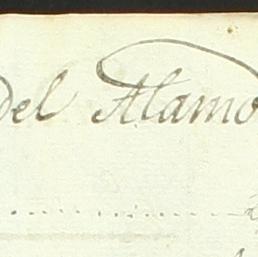 del Alamo